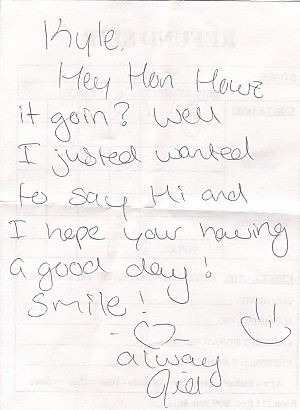 Kyle.
Hey Hon Howz
it goin? Well
I justed wanted
to say Hi and
I hope your having
a good day!
Smile!
alway